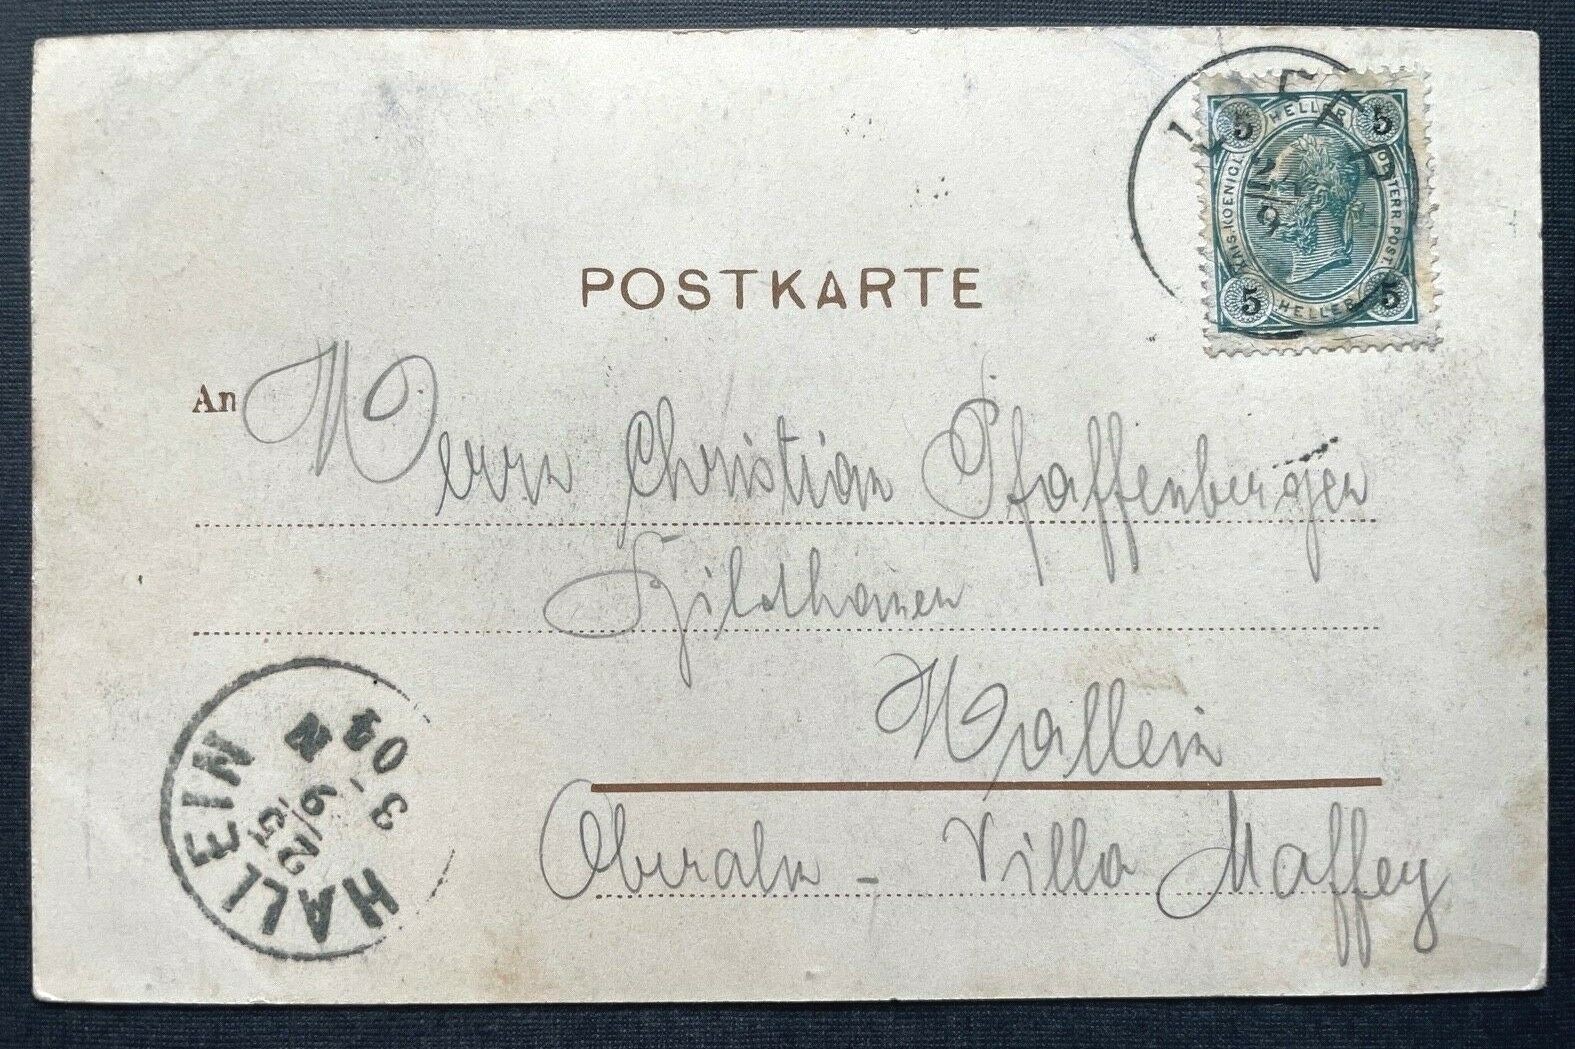 POSTKARTE
5 HELLER 5
KAIS. KOENIGL. OESTERR. POST.
5 HELLER 5
2/9
An Herrn Christian Pfaffenberger
Bildhauer
Hallein
Oberalm - Villa Maffey
HALLEIN
2/9 5
3 - 04
N